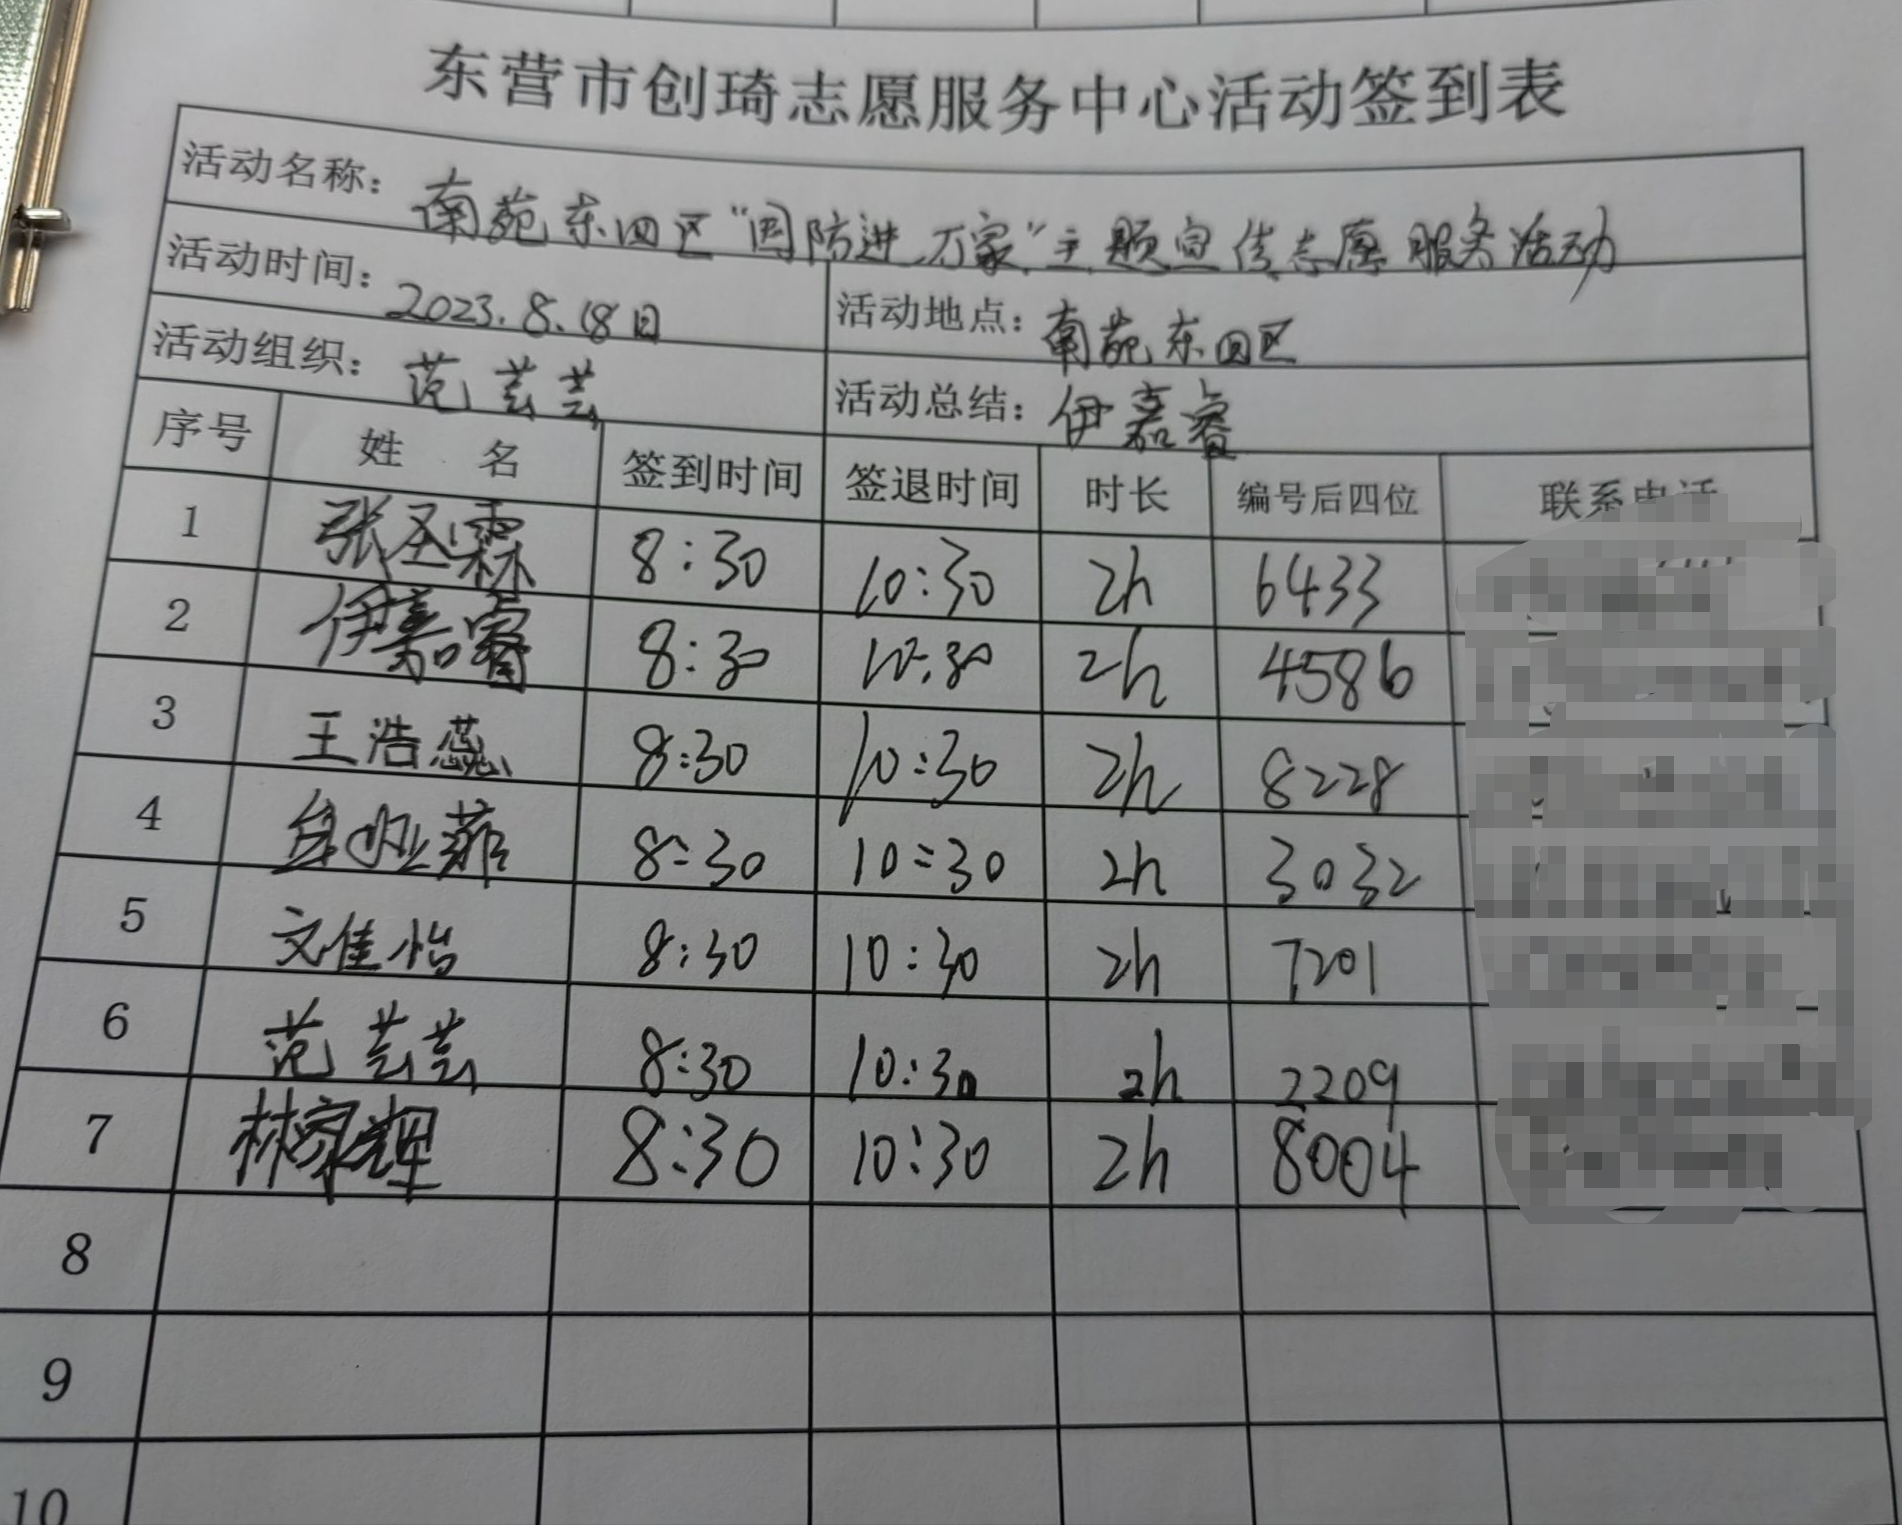 东营市创琦志愿服务中心活动签到表
活动名称：南苑东四区“国防进万家”主题宣传志愿服务活动
活动时间：2023.8.18日 活动地点：南苑东四区
活动组织：范芸芸 活动总结：伊嘉睿
序号 姓名 签到时间 签退时间 时长 编号后四位 联系电话
1 张圣霖 8:30 10:30 2h 6433
2 伊嘉睿 8:30 10:30 2h 4586
3 王浩蕊 8:30 10:30 2h 8228
4 8:30 10:30 2h 3032
5 文佳怡 8:30 10:30 2h 7201
6 范芸芸 8:30 10:30 2h 2209
7 林家辉 8:30 10:30 2h 8004
8
9
10